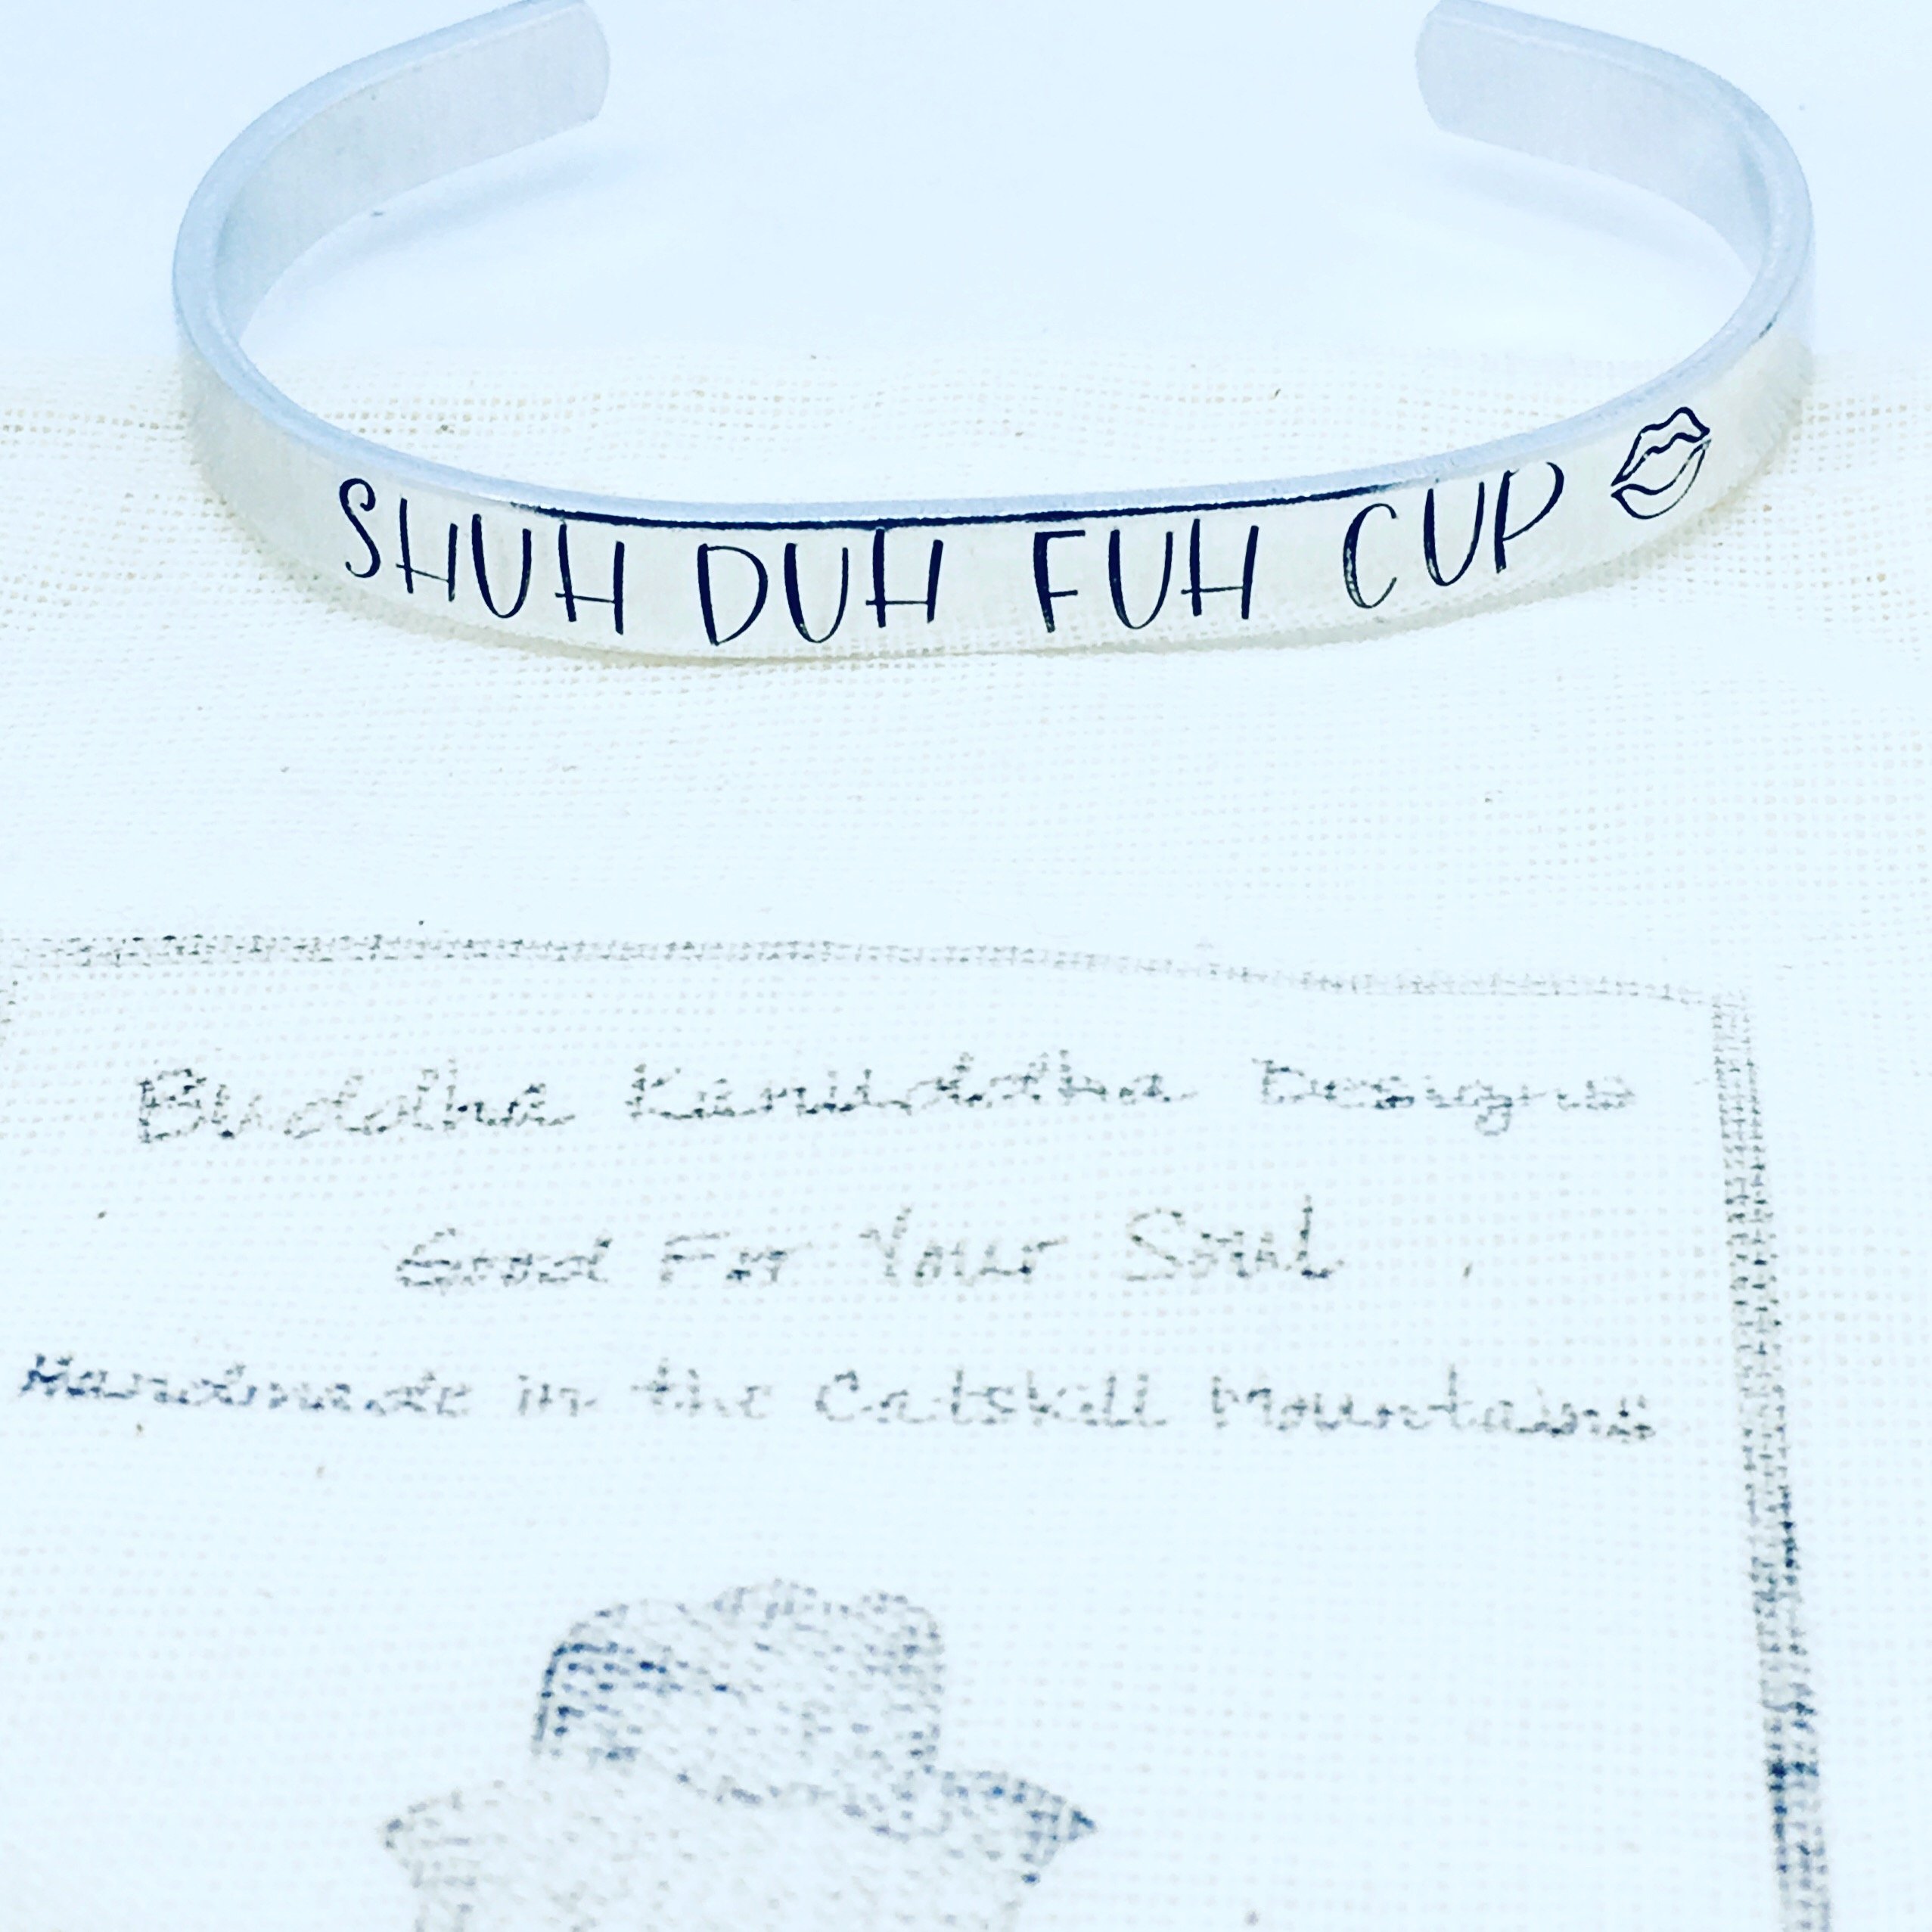 SHUH DUH FUH CUP
Buddha Karmalatha Designs
Good For Your Soul
Handmade in the Catskill Mountains